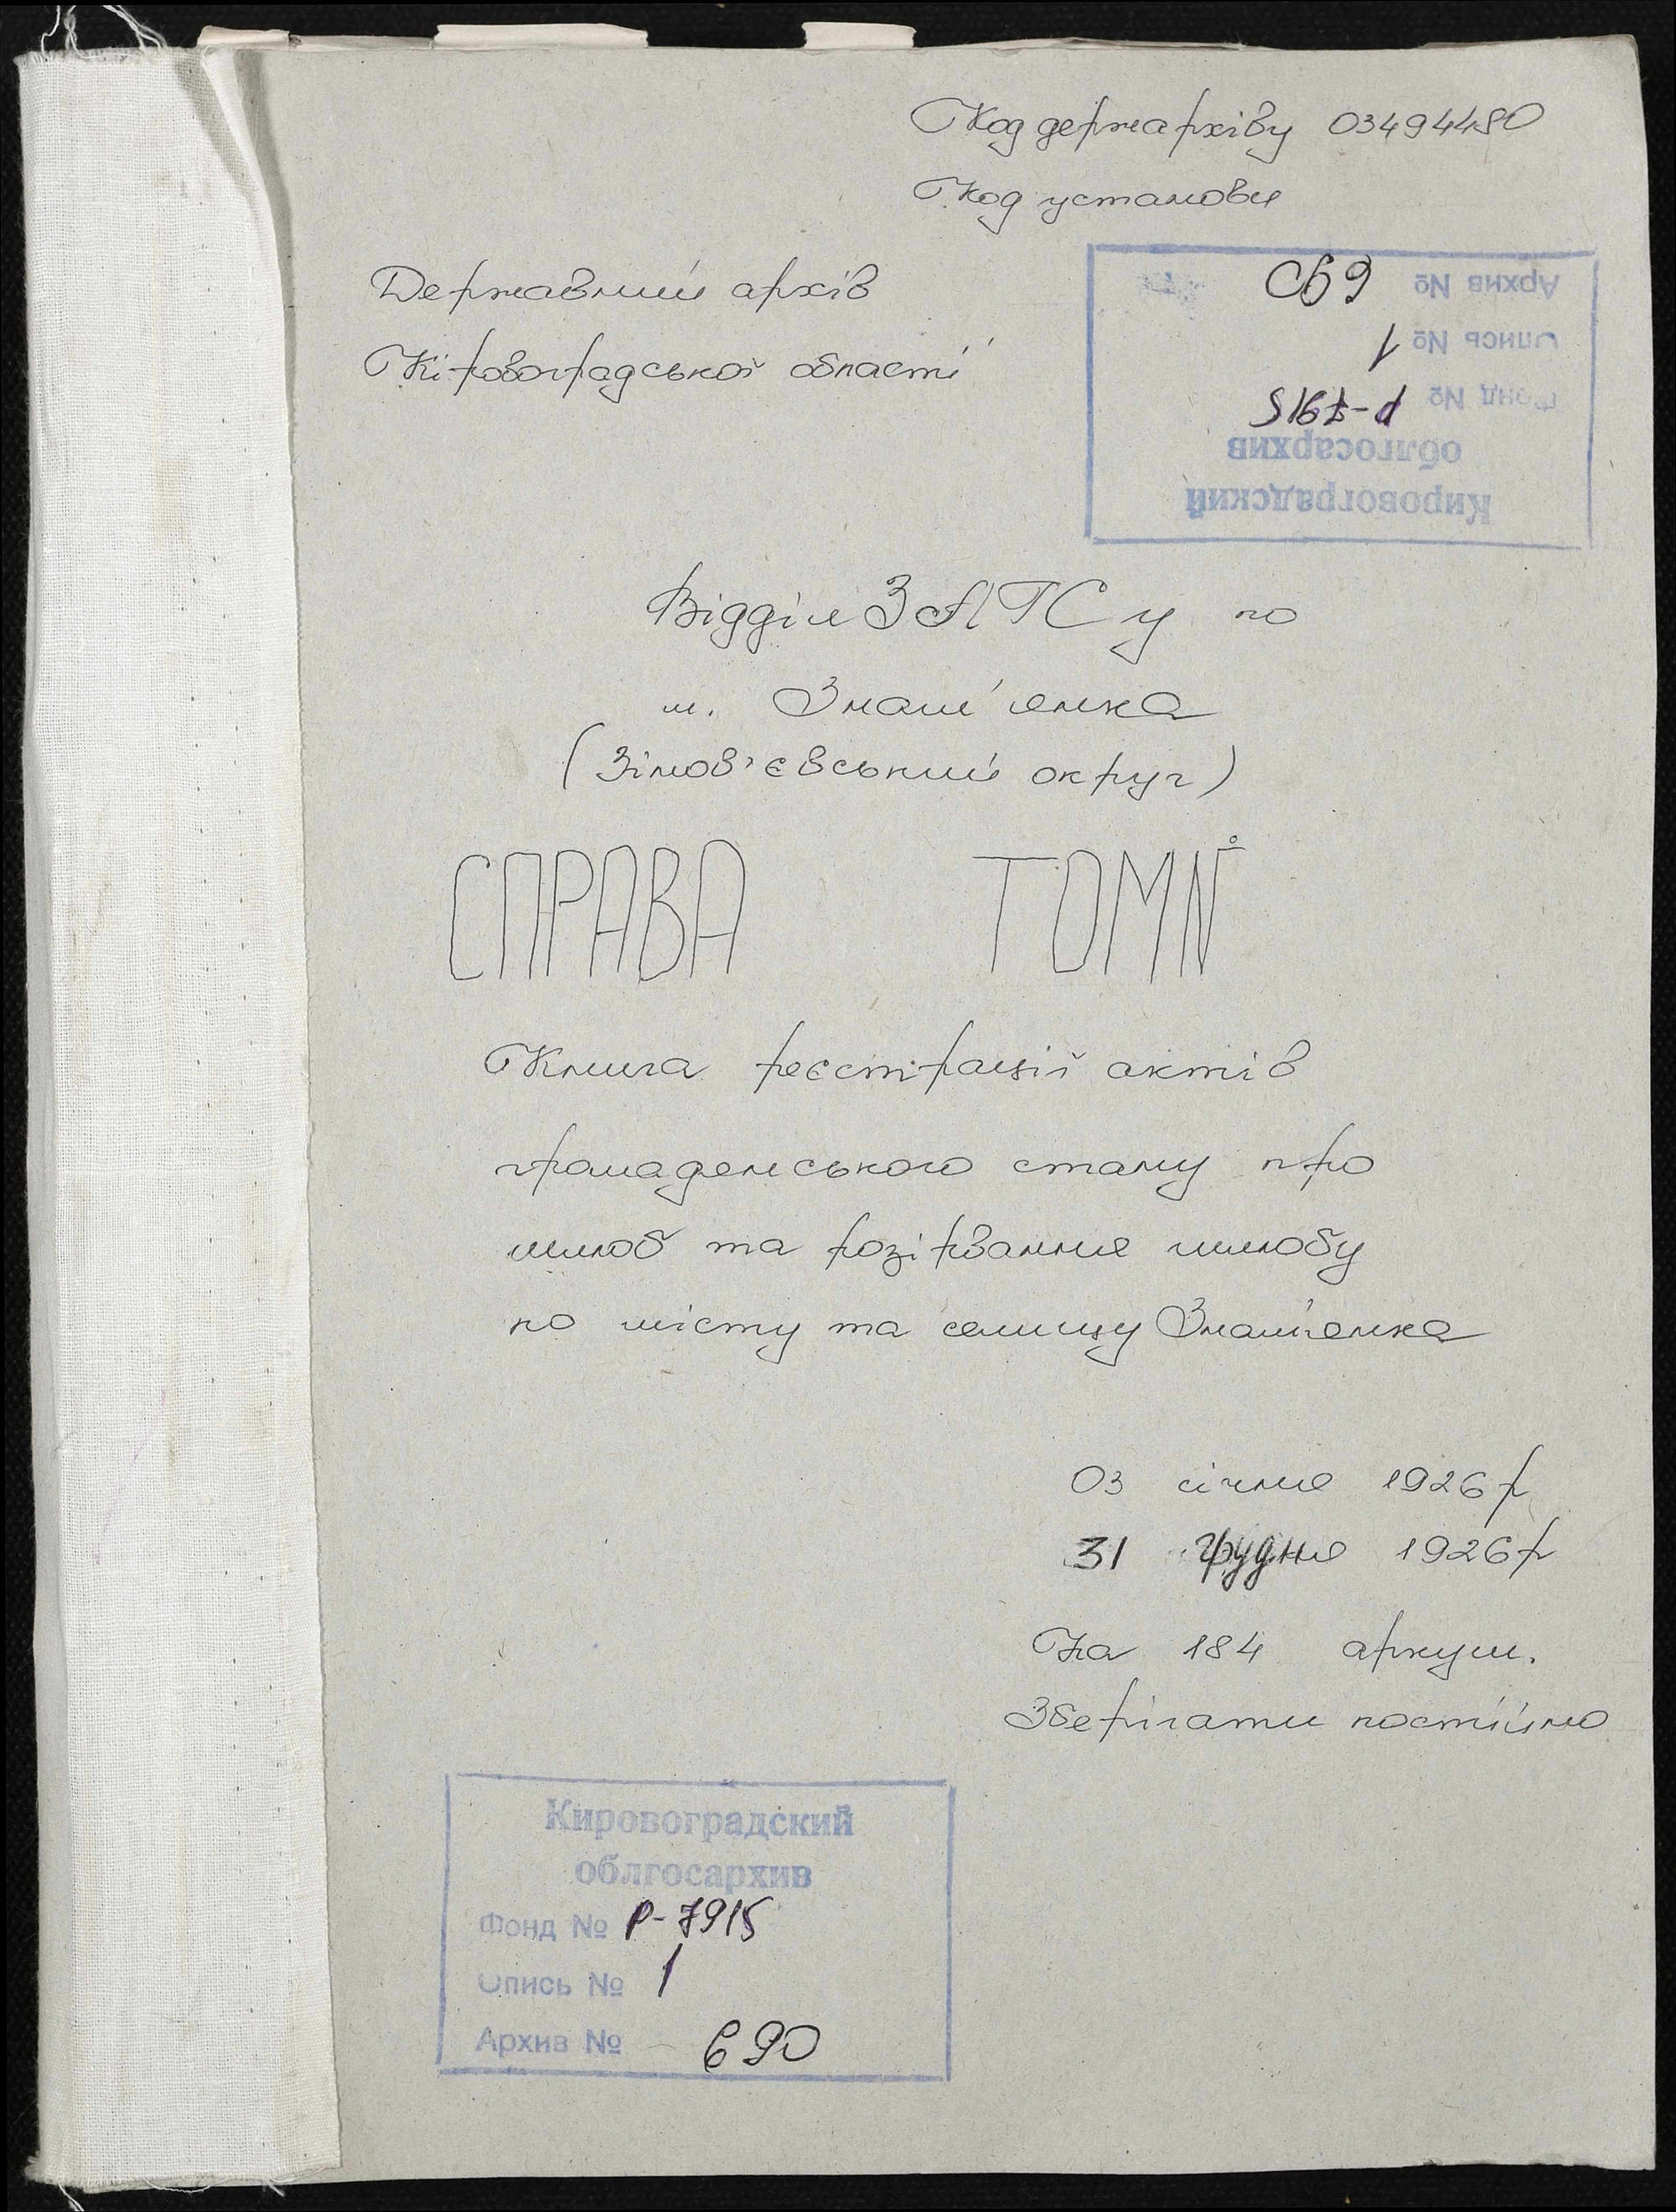 Код держархіву 03494480
Код установи
Державний архів
Кіровоградської області
Кировоградский
облгосархив
Фонд № Р-7915
Опись № 1
Архив № 690
Відділ ЗАГСу по
м. Знам'янка
(Зінов'євський округ)
СПРАВА ТОМ№
Книга реєстрації актів
громадянського стану про
шлюб та розірвання шлюбу
по місту та селищу Знам'янка
03 січня 1926р
31 грудня 1926р
На 184 аркуш.
Зберігати постійно
Кировоградский
облгосархив
Фонд № Р-7915
Опись № 1
Архив № 690